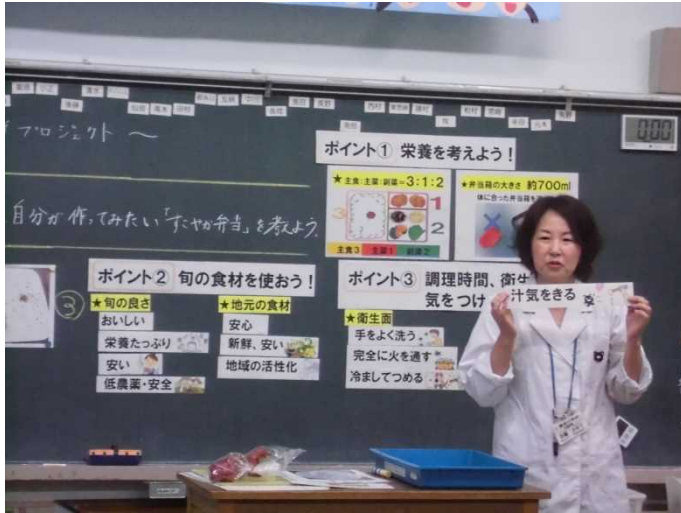 プロジェクト ～
自分が作ってみたい「すこやか弁当」を考えよう。
ポイント① 栄養を考えよう！
★主食:主菜:副菜=3:1:2
3
1
2
主食3 主菜1 副菜2
★弁当箱の大きさ 約700ml
体に合った弁当箱を
0:00
③
ポイント② 旬の食材を使おう！
★旬の良さ
おいしい
栄養たっぷり
安い
低農薬・安全
★地元の食材
安心
新鮮、安い
地域の活性化
ポイント③ 調理時間、衛生
気をつけ
★衛生面
手をよく洗う
完全に火を通す
冷ましてつめる
汁気をきる